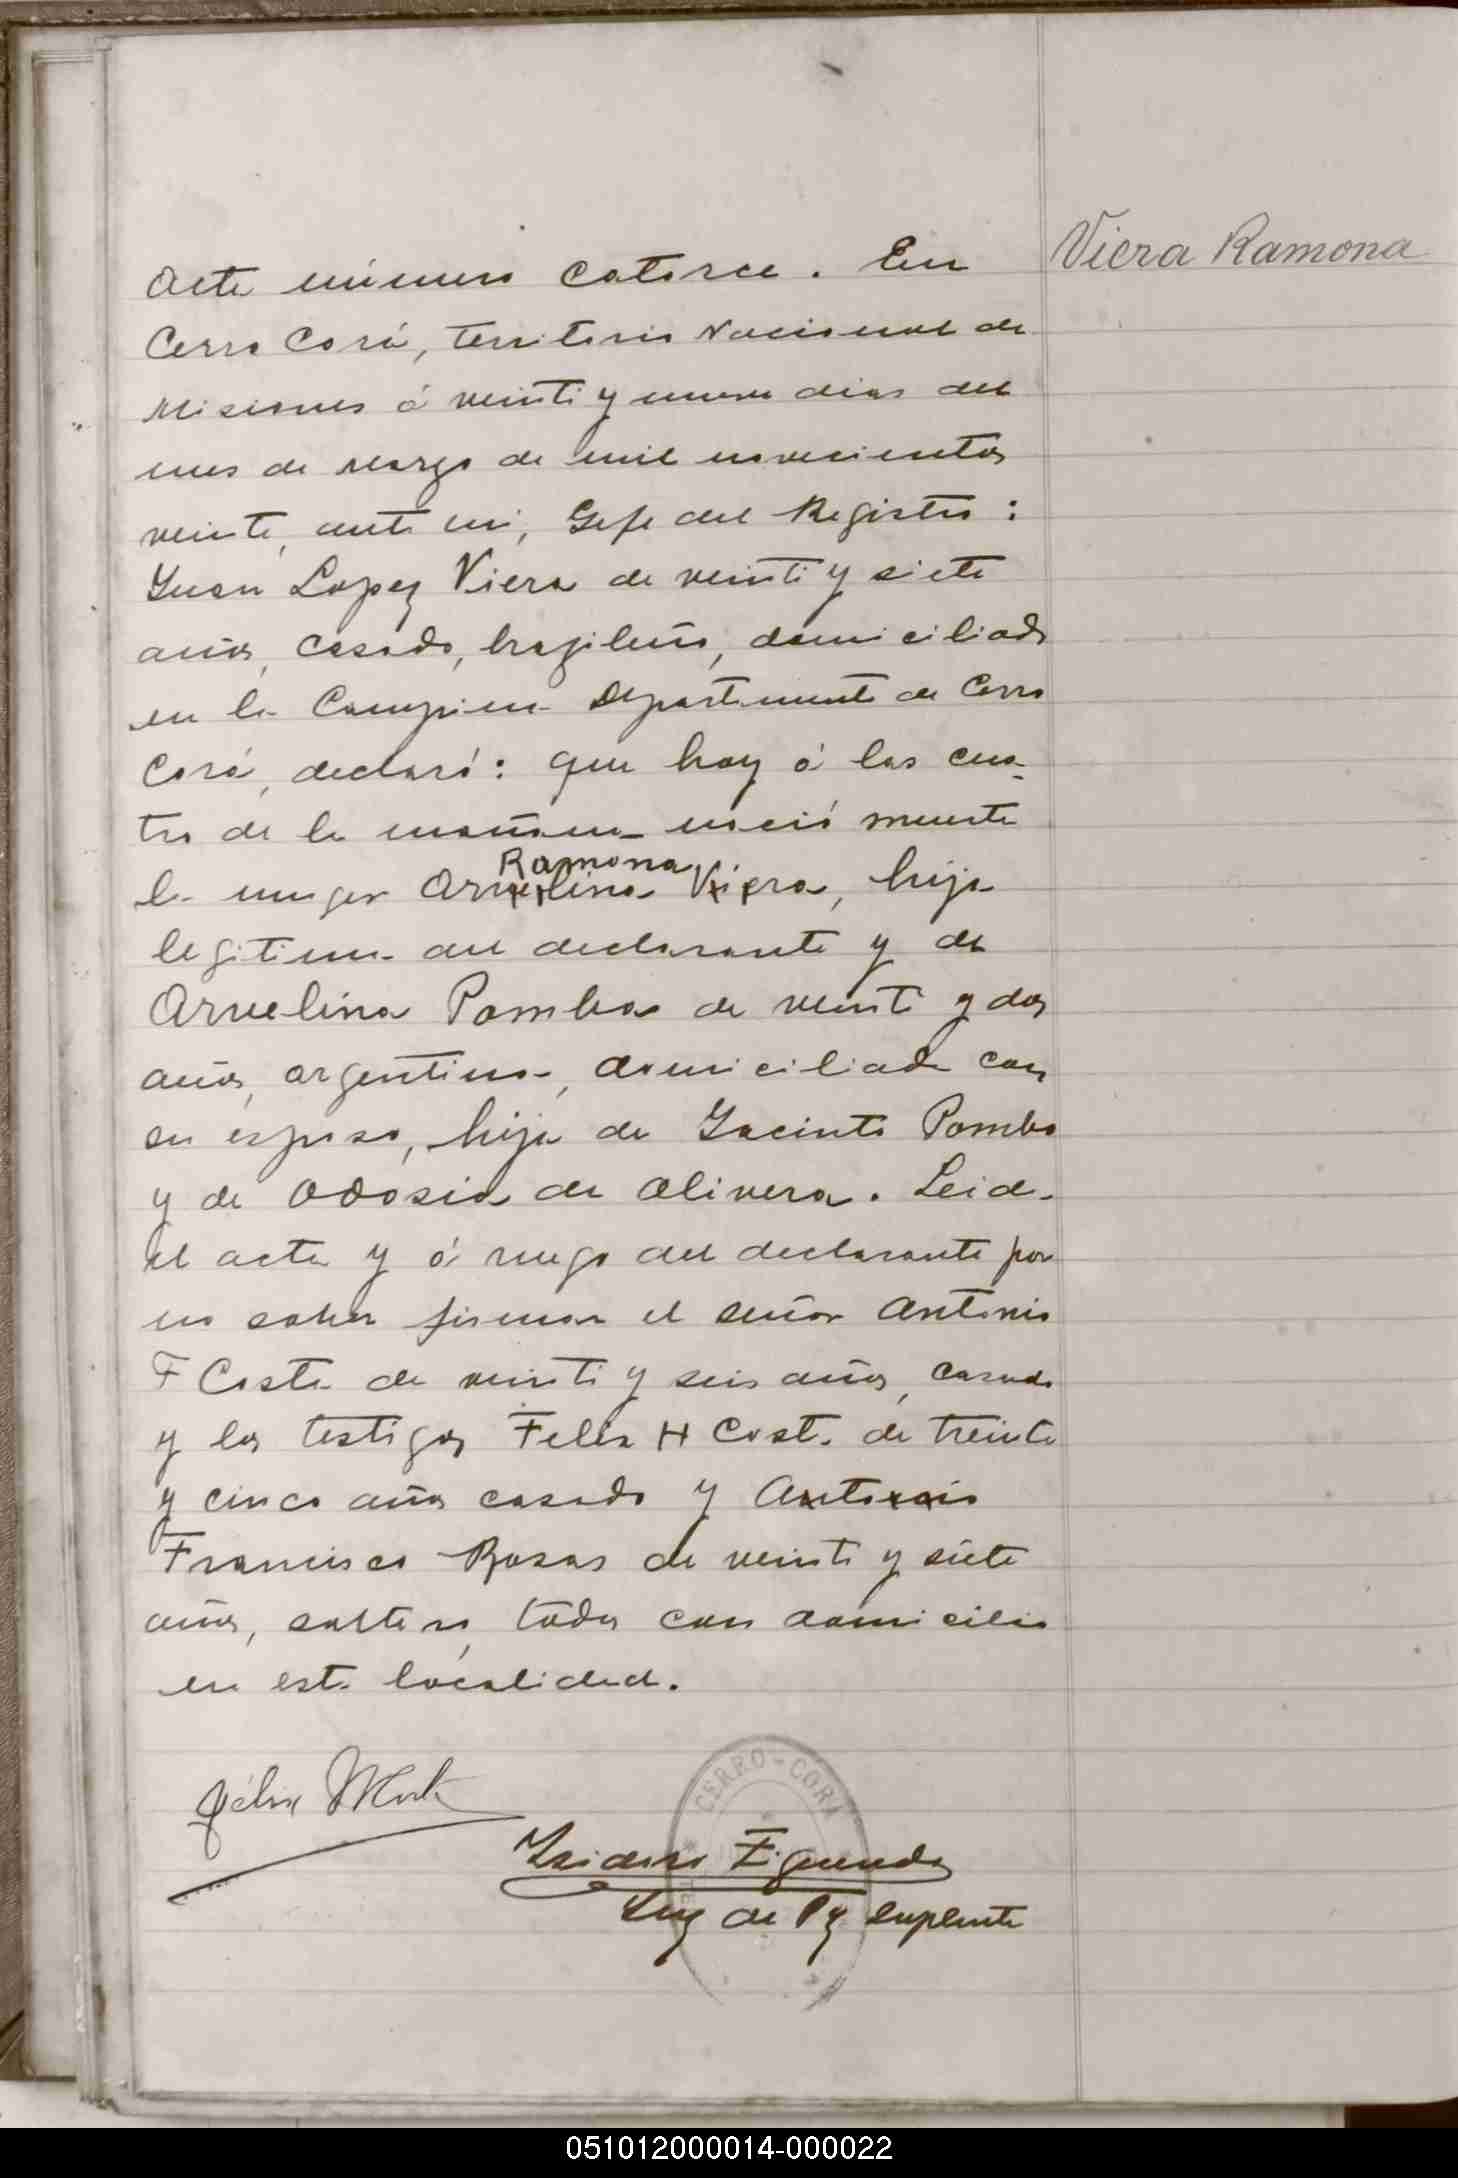 Viera Ramona
Acta número Catorce. En
Cerro Corá, territorio Nacional de
Misiones á veinti y nueve dias del
mes de marzo de mil novecientos
veinte, ante mi, Gefe del Registro:
Juan Lopez Viera de veinti y siete
años, casado, brazileño, domiciliado
en la Campina Departamento de Cerro
Corá, declaró: que hoy á las cua-
tro de la mañana nació muerta
Ramona
la muger Arvelina Viera, hija
legitima del declarante y de
Arvelina Pombo de veinti y dos
años, argentina, domiciliada con
su esposo, hija de Jacinto Pombo
y de Odosia de Olivera. Leida
el acta y á ruego del declarante por
no saber firmar el señor Antonio
F Costa de veinti y seis años, casado
y los testigos Felix H Costa de treinta
y cinco años casado y Antonio
Francisco Rosas de veinti y siete
años, soltero, todos con domicilio
en esta localidad.
CERRO-CORA
Isidoro Figueredo
Juez de Pz suplente
051012000014-000022